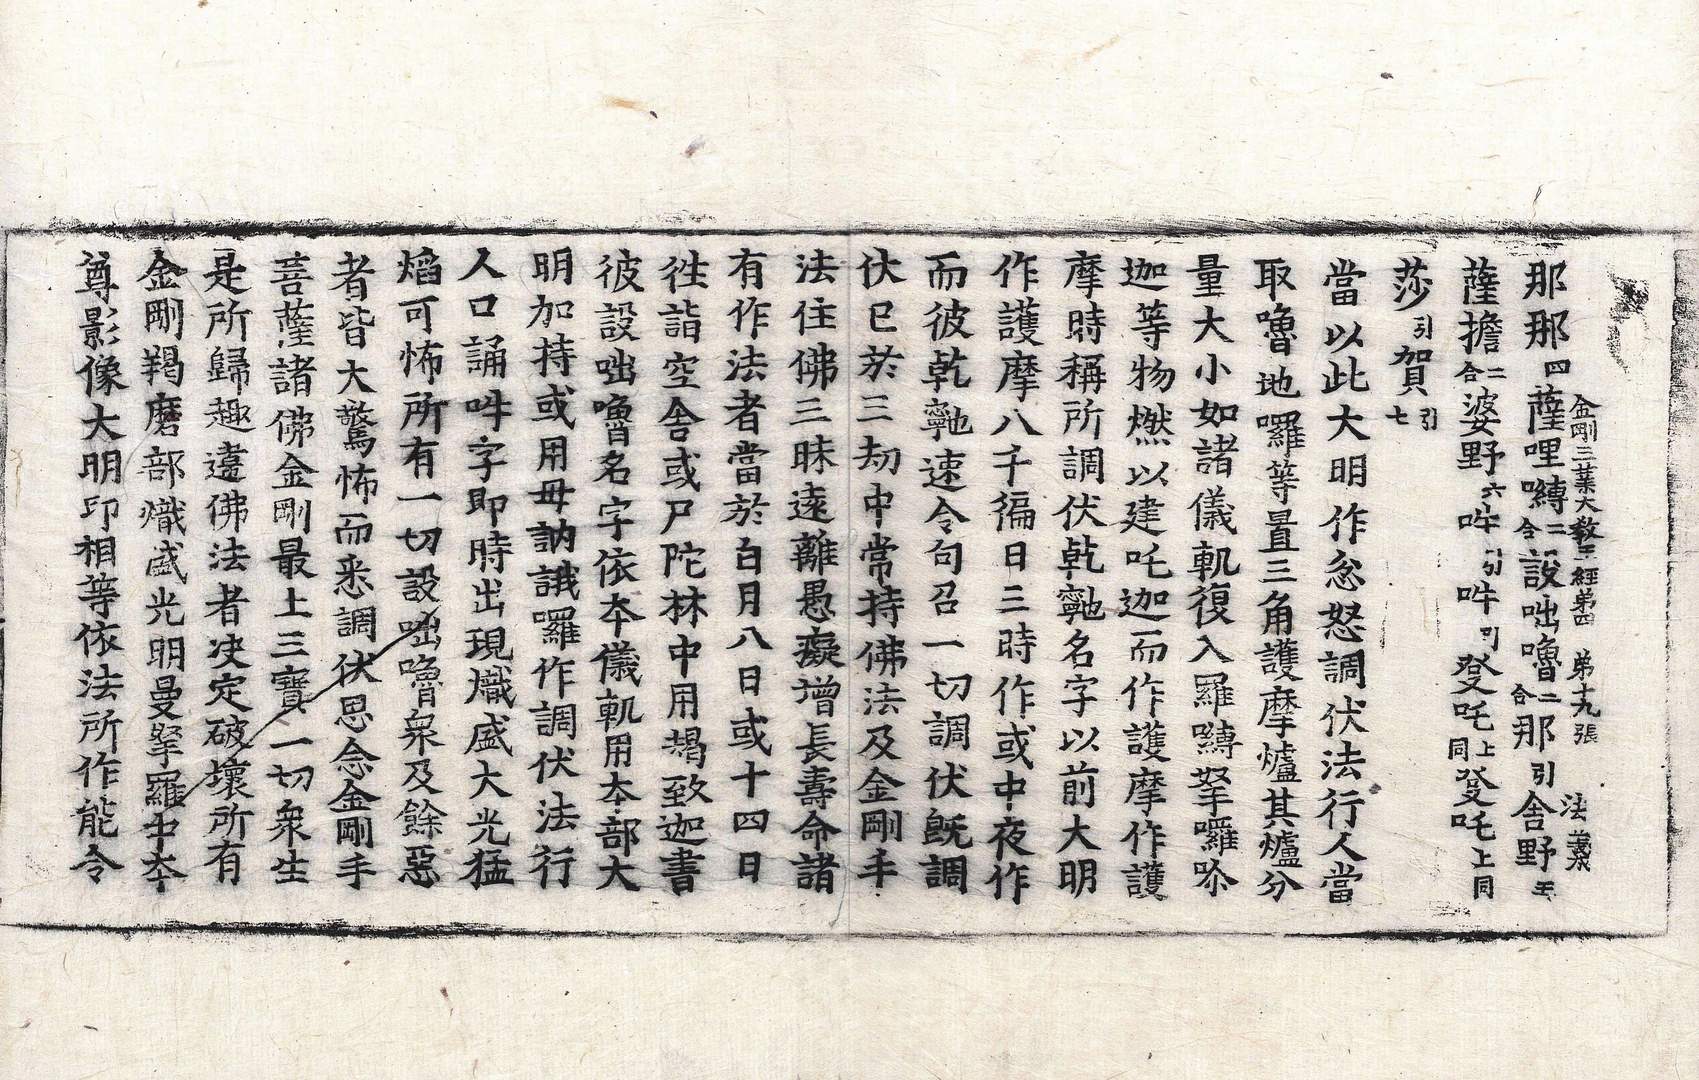 金剛三業大教王經第四　第十九張　法
那那四薩哩嚩二合設咄嚕二合那引舍野五
薩擔二合婆野六吽引吽引登吒上同登吒上同
莎引賀引七
當以此大明作忿怒調伏法行人當
取嚕地囉等置三角護摩爐其爐分
量大小如諸儀軌復入羅嚩拏囉吤
迦等物燃以建吒迦而作護摩作護
摩時稱所調伏乾𪗾名字以前大明
作護摩八千徧日三時作或中夜作
而彼乾𪗾速令句召一切調伏旣調
伏已於三劫中常持佛法及金剛手
法住佛三昧遠離愚癡增長壽命諸
有作法者當於白月八日或十四日
徃詣空舍或尸陀林中用朅致迦書
彼設咄嚕名字依本儀軌用本部大
明加持或用毋訥誐囉作調伏法行
人口誦吽字即時出現熾盛大光猛
焰可怖所有一切設咄嚕衆及餘惡
者皆大驚怖而悉調伏思念金剛手
菩薩諸佛金剛最上三寶一切衆生
是所歸趣違佛法者决定破壞所有
金剛羯磨部熾盛光明曼拏羅中本
尊影像大明印相等依法所作能令